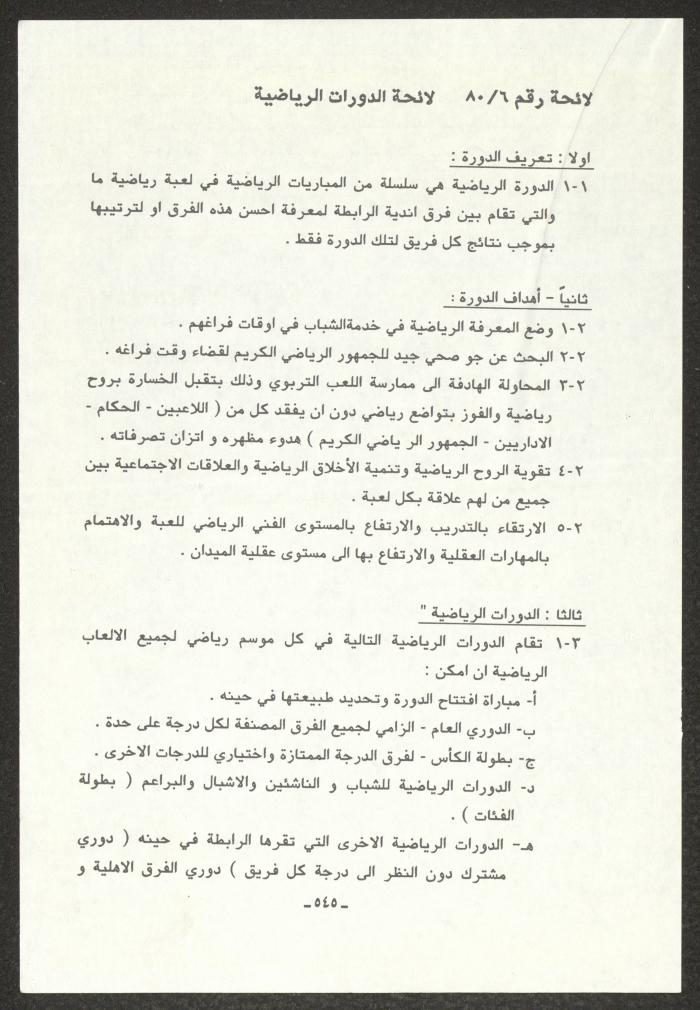 لائحة رقم ٨٠/٦ لائحة الدورات الرياضية
اولا : تعريف الدورة :
١-١ الدورة الرياضية هي سلسلة من المباريات الرياضية في لعبة رياضية ما
والتي تقام بين فرق اندية الرابطة لمعرفة احسن هذه الفرق او لترتيبها
بموجب نتائج كل فريق لتلك الدورة فقط .
ثانياً - أهداف الدورة :
٢-١ وضع المعرفة الرياضية في خدمةالشباب في اوقات فراغهم .
٢-٢ البحث عن جو صحي جيد للجمهور الرياضي الكريم لقضاء وقت فراغه .
٢-٣ المحاولة الهادفة الى ممارسة اللعب التربوي وذلك بتقبل الخسارة بروح
رياضية والفوز بتواضع رياضي دون ان يفقد كل من ( اللاعبين - الحكام -
الاداريين - الجمهور الر ياضي الكريم ) هدوء مظهره و اتزان تصرفاته .
٢-٤ تقوية الروح الرياضية وتنمية الأخلاق الرياضية والعلاقات الاجتماعية بين
جميع من لهم علاقة بكل لعبة .
٢-٥ الارتقاء بالتدريب والارتفاع بالمستوى الفني الرياضي للعبة والاهتمام
بالمهارات العقلية والارتفاع بها الى مستوى عقلية الميدان .
ثالثا : الدورات الرياضية "
٣-١ تقام الدورات الرياضية التالية في كل موسم رياضي لجميع الالعاب
الرياضية ان امكن :
أ- مباراة افتتاح الدورة وتحديد طبيعتها في حينه .
ب- الدوري العام - الزامي لجميع الفرق المصنفة لكل درجة على حدة .
ج- بطولة الكأس - لفرق الدرجة الممتازة واختياري للدرجات الاخرى .
د- الدورات الرياضية للشباب و الناشئين والاشبال والبراعم ( بطولة
الفئات ) .
هـ- الدورات الرياضية الاخرى التي تقرها الرابطة في حينه ( دوري
مشترك دون النظر الى درجة كل فريق ) دوري الفرق الاهلية و
-٥٤٥-